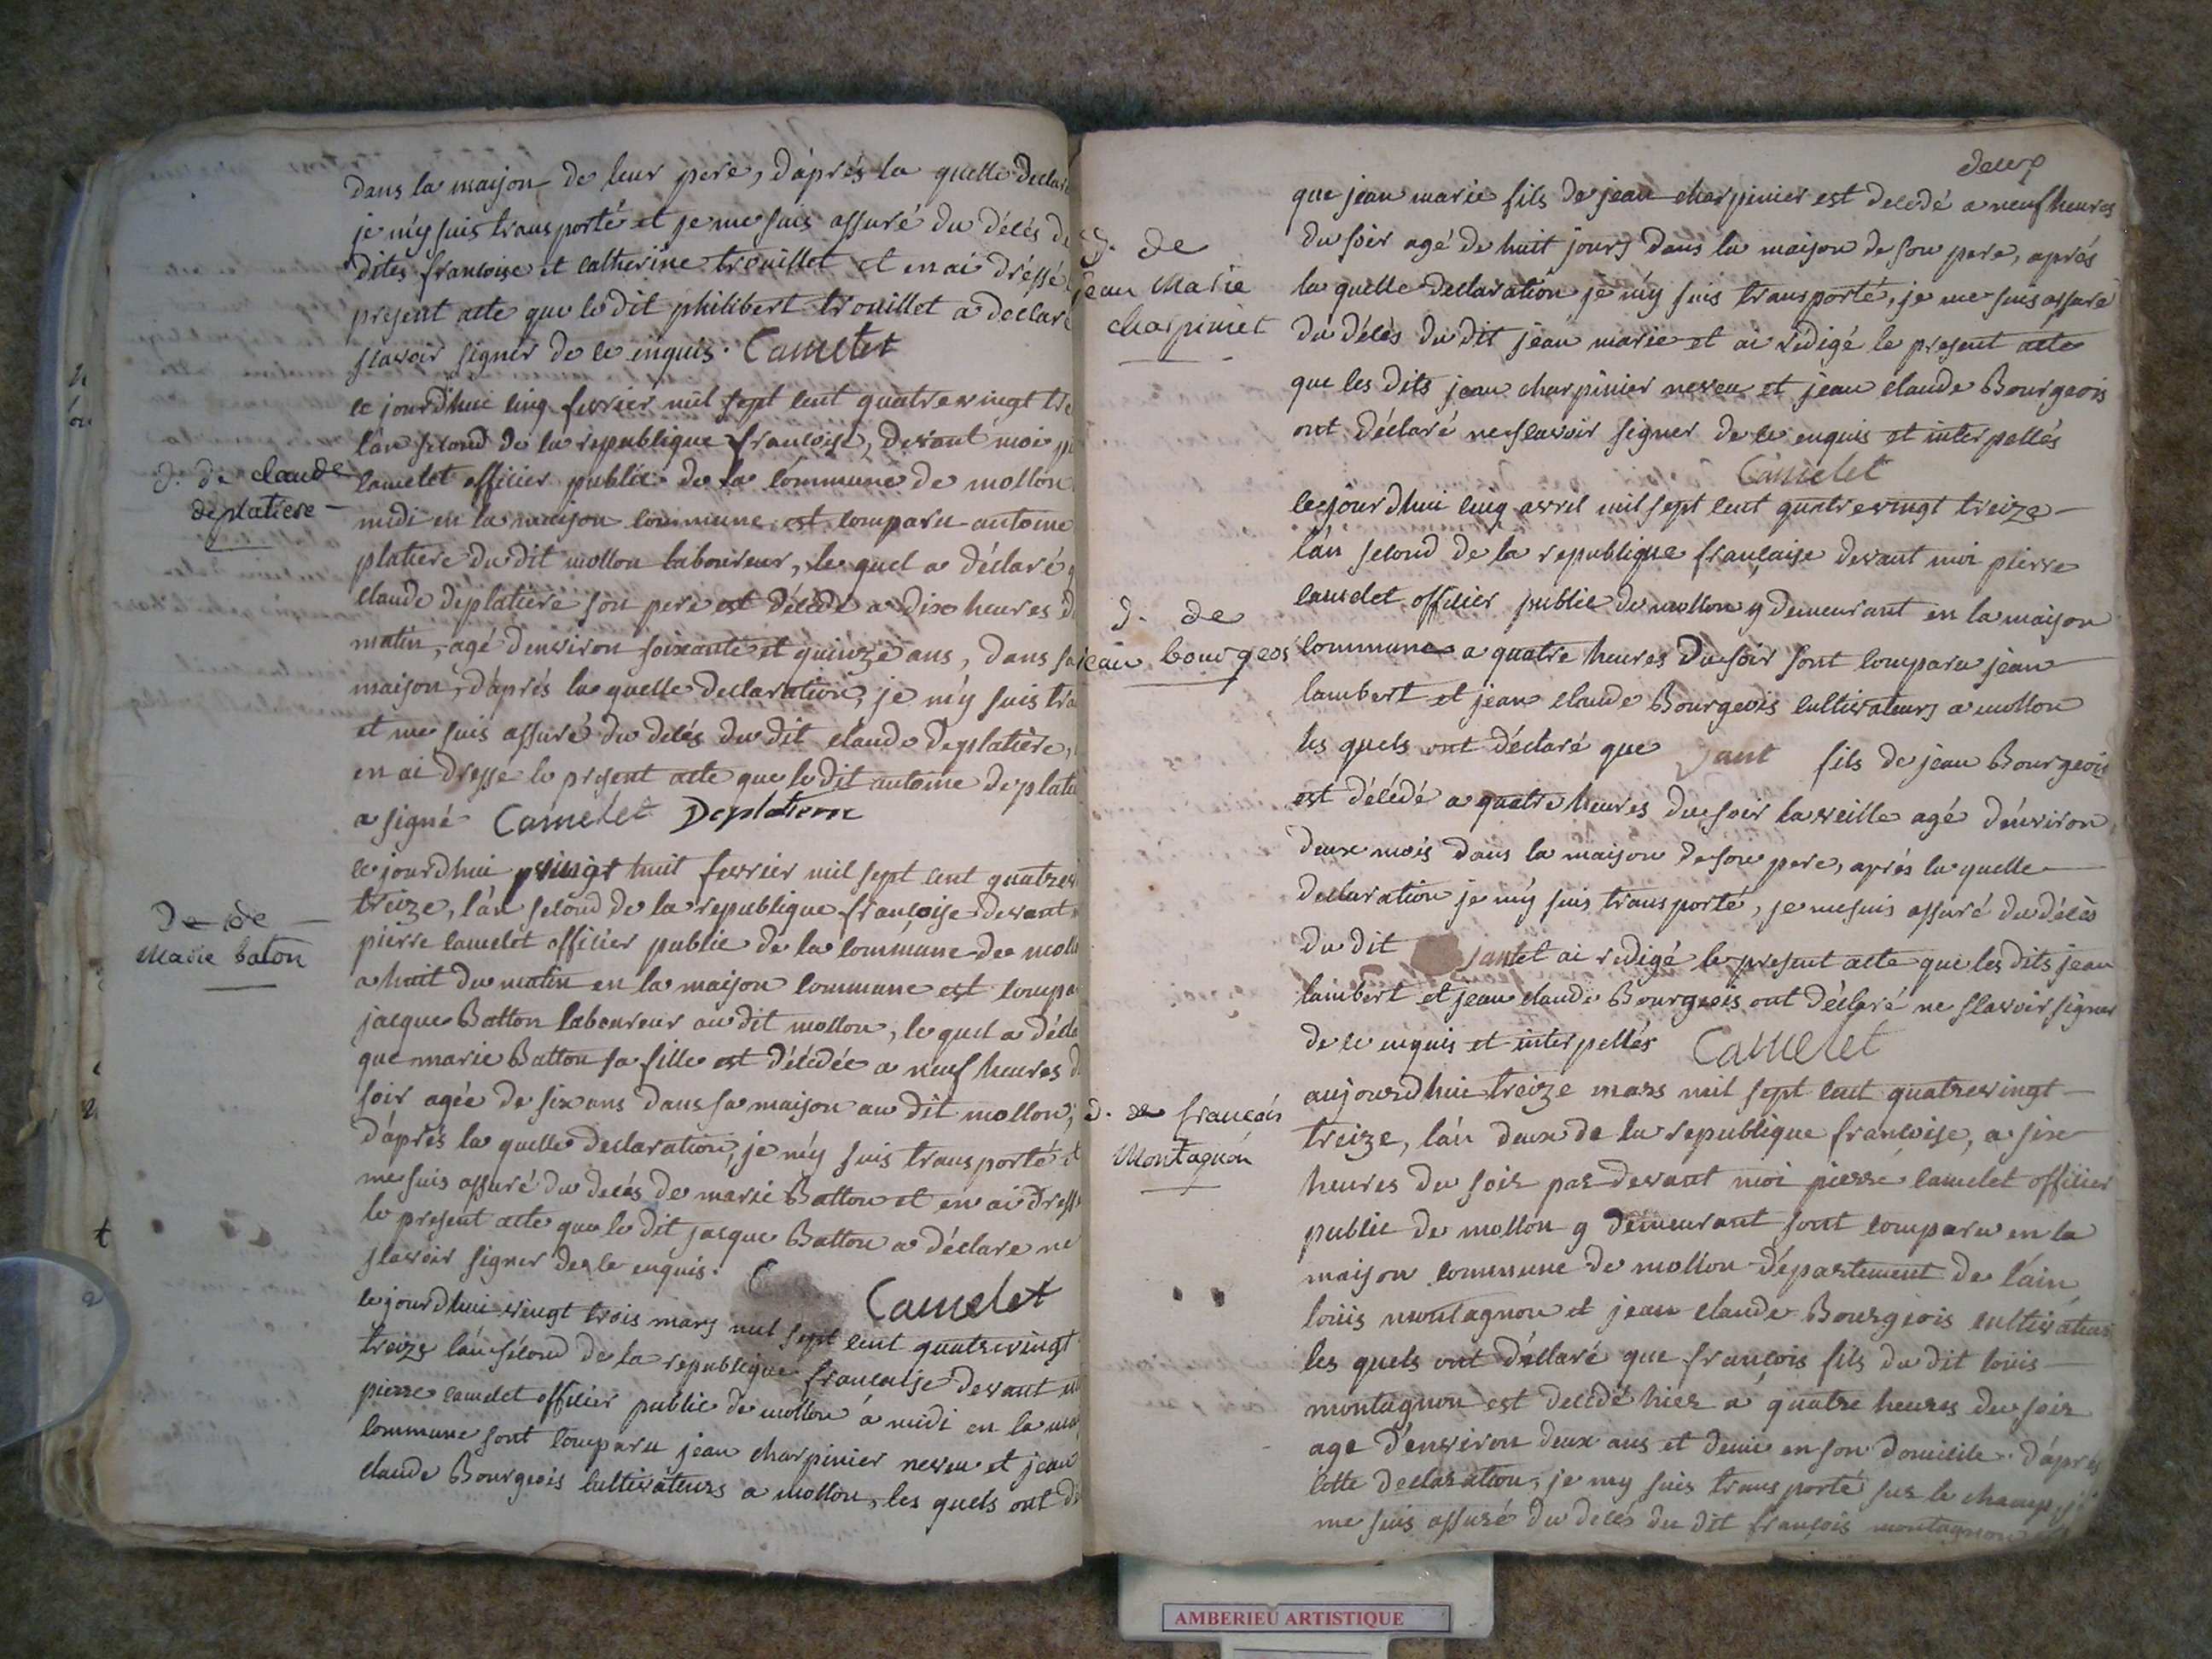 dans la maison de leur pere, d'aprés la quelle declar
je m'y suis transporté et je me suis assuré du décés de
dites francoise et catherine trouillet et en ai dréssé
present acte que le dit philibert trouillet a déclaré
scavoir signer de ce enquis. Camelet
ce jourd'hui cinq fevrier mil sept cent quatrevingt tre
l'an second de la republique francoise, devant moi pi
d. de claude
deplatiere
camelet officier public de la commune de mollon
midi en la maison commune est comparu antoine
platiere du dit mollon laboureur, le quel a déclaré q
claude deplatiere son pere est décédé a dix heures d
matin, agé d'environ soixante et quinze ans, dans sa
maison, d'aprés la quelle declaration, je m'y suis tra
et me suis assuré du decés du dit claude deplatière,
en ai dressé le present acte que le dit antoine deplati
a signé Camelet Deplatiere
ce jourd'hui vingt huit fevrier mil sept cent quatrevi
treize, l'an second de la republique françoise devant
De de
Marie baton
pierre camelet officier public de la commune de moll
a huit du matin en la maison commune est compa
jacque Batton laboureur au dit mollon, le quel a décla
que marie Batton sa fille est décédée a neuf heures d
soir agée de six ans dans sa maison au dit mollon,
d'aprés la quelle declaration, je m'y suis transporté et
me suis assuré du decés de marie Batton et en ai dress
le present acte que le dit jacque Batton a déclare ne
scavoir signer de ce enquis.
Camelet
ce jourd'hui vingt trois mars mil sept cent quatrevingt
treize l'an sécond de la republique francaise devant m
pierre camelet officier public de mollon à midi en la mai
commune sont comparu jean charpinier neveu et jean
claude Bourgeois cultivateurs a mollon, les quels ont dé
deux
que jean marie fils de jean charpinier est decédé a neuf heures
d. de
jean Marie
charpiniet
du soir agé de huit jours dans la maison de son pere, aprés
la quelle declaration je m'y suis transporté, je me suis assuré
du décés du dit jean marie et ai rédigé le present acte
que les dits jean charpinier neveu et jean claude Bourgeois
ont déclaré ne scavoir signer de ce enquis et interpellés
Camelet
ce jourd'hui cinq avril mil sept cent quatrevingt treize
l'an second de la republique française devant moi pierre
d. de
jean bourgeos
camelet officier public de mollon y demeurant en la maison
commune a quatre heures du soir sont comparu jean
lambert et jean claude Bourgeois cultivateurs a mollon
les quels ont déclaré que jant fils de jean Bourgeois
est décédé a quatre heures du soir la veille agé d'environ
deux mois dans la maison de son pere, aprés la quelle
declaration je m'y suis transporté, je me suis assuré du décès
du dit jant et ai redigé le present acte que les dits jean
lambert et jean claude Bourgeois ont déclaré ne scavoir signer
de ce enquis et interpellés Camelet
aujourd'hui treize mars mil sept cent quatrevingt
d. de francois
Montagnon
treize, l'an deux de la republique francoise, a six
heures du soir par devant moi pierre camelet officier
public de mollon y demeurant sont comparu en la
maison commune de mollon département de l'ain,
louis montagnon et jean claude Bourgeois cultivateur
les quels ont déclaré que françois fils du dit louis
montagnon est decédé hier a quatre heures du soir
age d'environ deux ans et demi en son domicile. d'aprés
cette declaration, je my suis transporté sur le champ, je
me suis assuré du decés du dit françois montagnon
AMBERIEU ARTISTIQUE